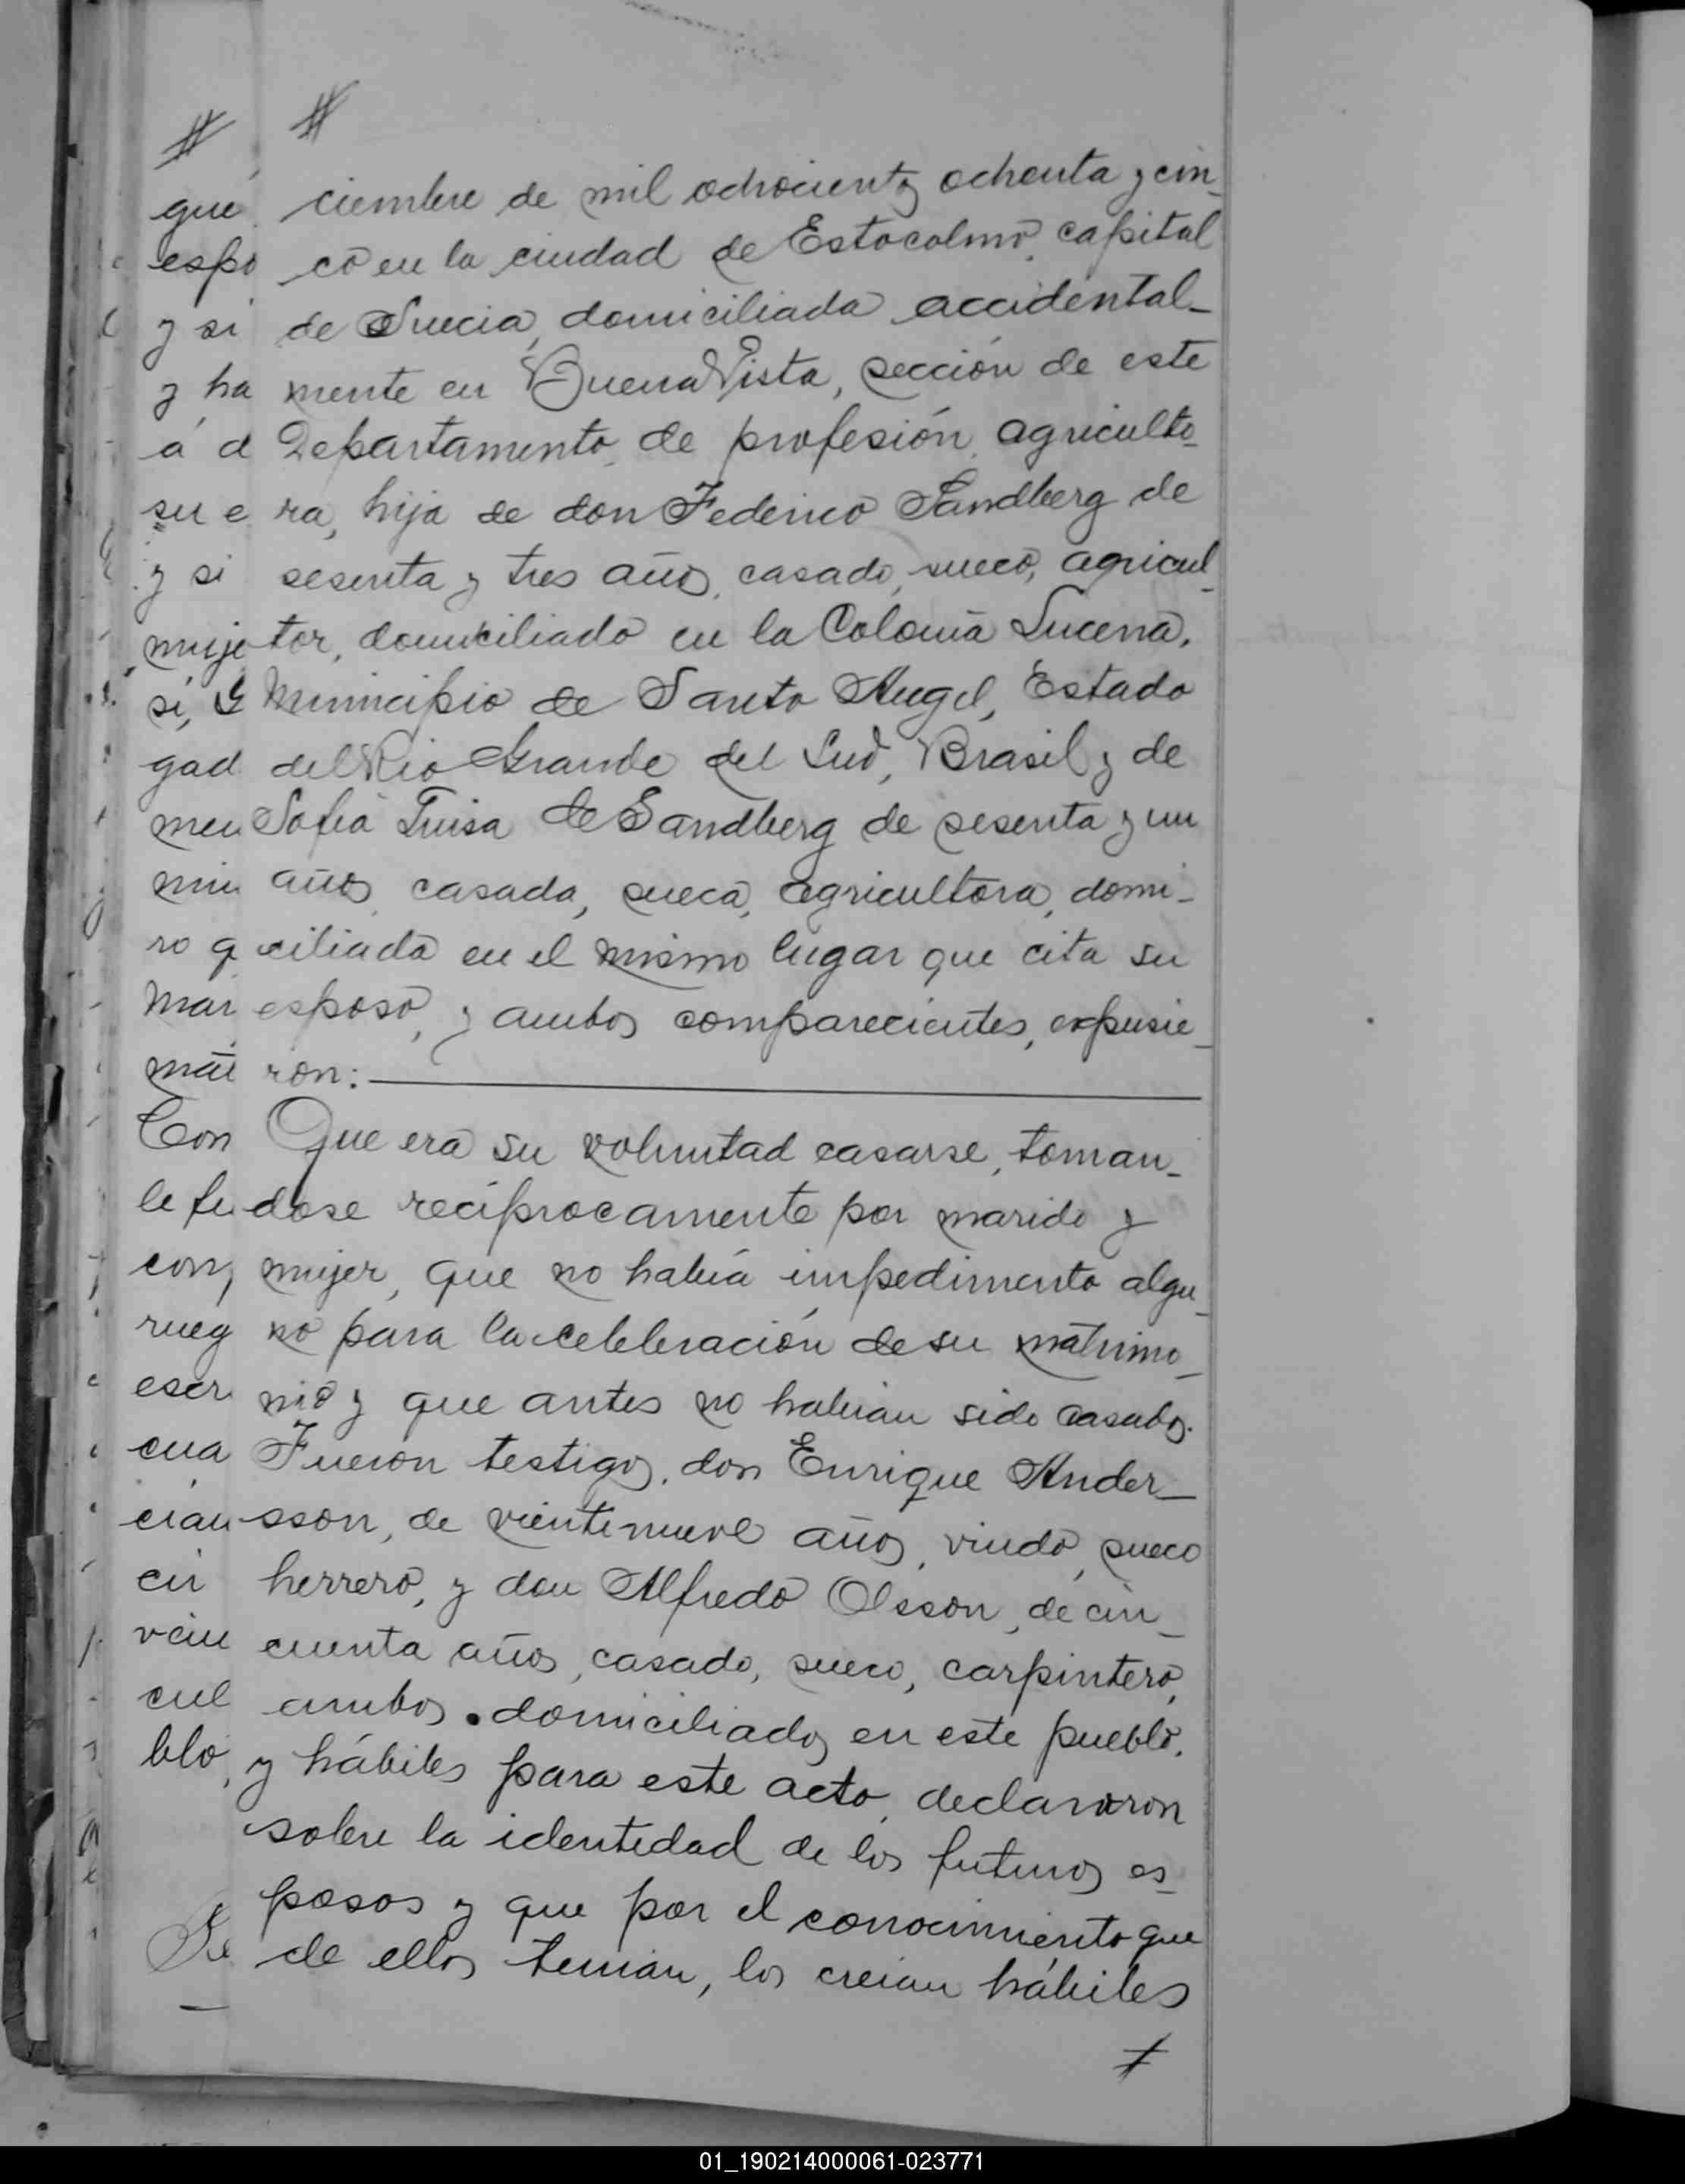 #
#
ciembre de mil ochocientos ochenta y cin_
co en la ciudad de Estocolmo, capital
de Suecia, domiciliada accidental_
mente en Buena Vista, sección de este
Departamento, de profesión agriculto_
ra, hija de don Federico Sandberg de
sesenta y tres años, casado, sueco, agricul_
tor, domiciliado en la Colonia Lucena,
Municipio de Santo Angel, Estado
del Rio Grande del Sud, Brasil y de
Sofia Luisa de Sandberg de sesenta y un
años, casada, sueca, agricultora, domi_
ciliada en el mismo lugar que cita su
esposo, y ambos comparecientes, expusie_
ron:
Que era su voluntad casarse, toman_
dose recíprocamente por marido y
mujer, que no había impedimento algu_
no para la celebración de su matrimo_
nio y que antes no habian sido casados.
Fueron testigos, don Enrique Ander_
sson, de vientinueve años, viudo, sueco
herrero, y don Alfredo Olsson, de cin_
cuenta años, casado, sueco, carpintero,
ambos domiciliados en este pueblo,
y hábiles para este acto, declararon
sobre la identedad de los futuros es_
posos y que por el conocimiento que
de ellos tenian, los creian hábiles
#
que
espo
y si
y ha
á d
su e
y si
muje
si,
gad
men
min
ro q
mar
mat
Con
le fu
con
rueg
escr
cua
cian
cin
vein
cul
blo,
Se
01_190214000061-023771